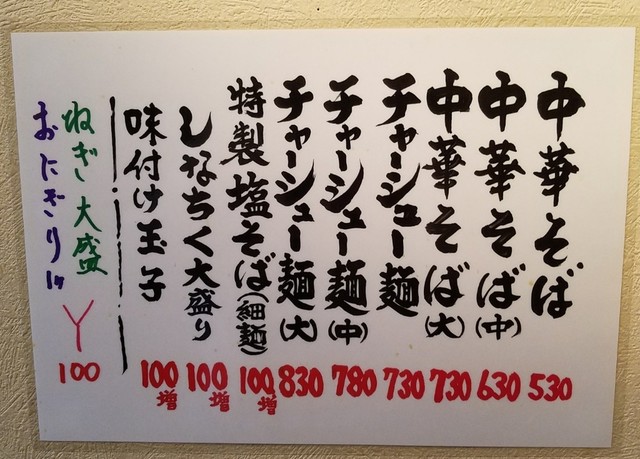 中華そば 530
中華そば(中) 630
中華そば(大) 730
チャーシュー麺 730
チャーシュー麺(中) 780
チャーシュー麺(大) 830
特製塩そば(細麺) 100増
しなちく大盛り 100増
味付け玉子 100増
ねぎ大盛
おにぎり1ケ
¥100